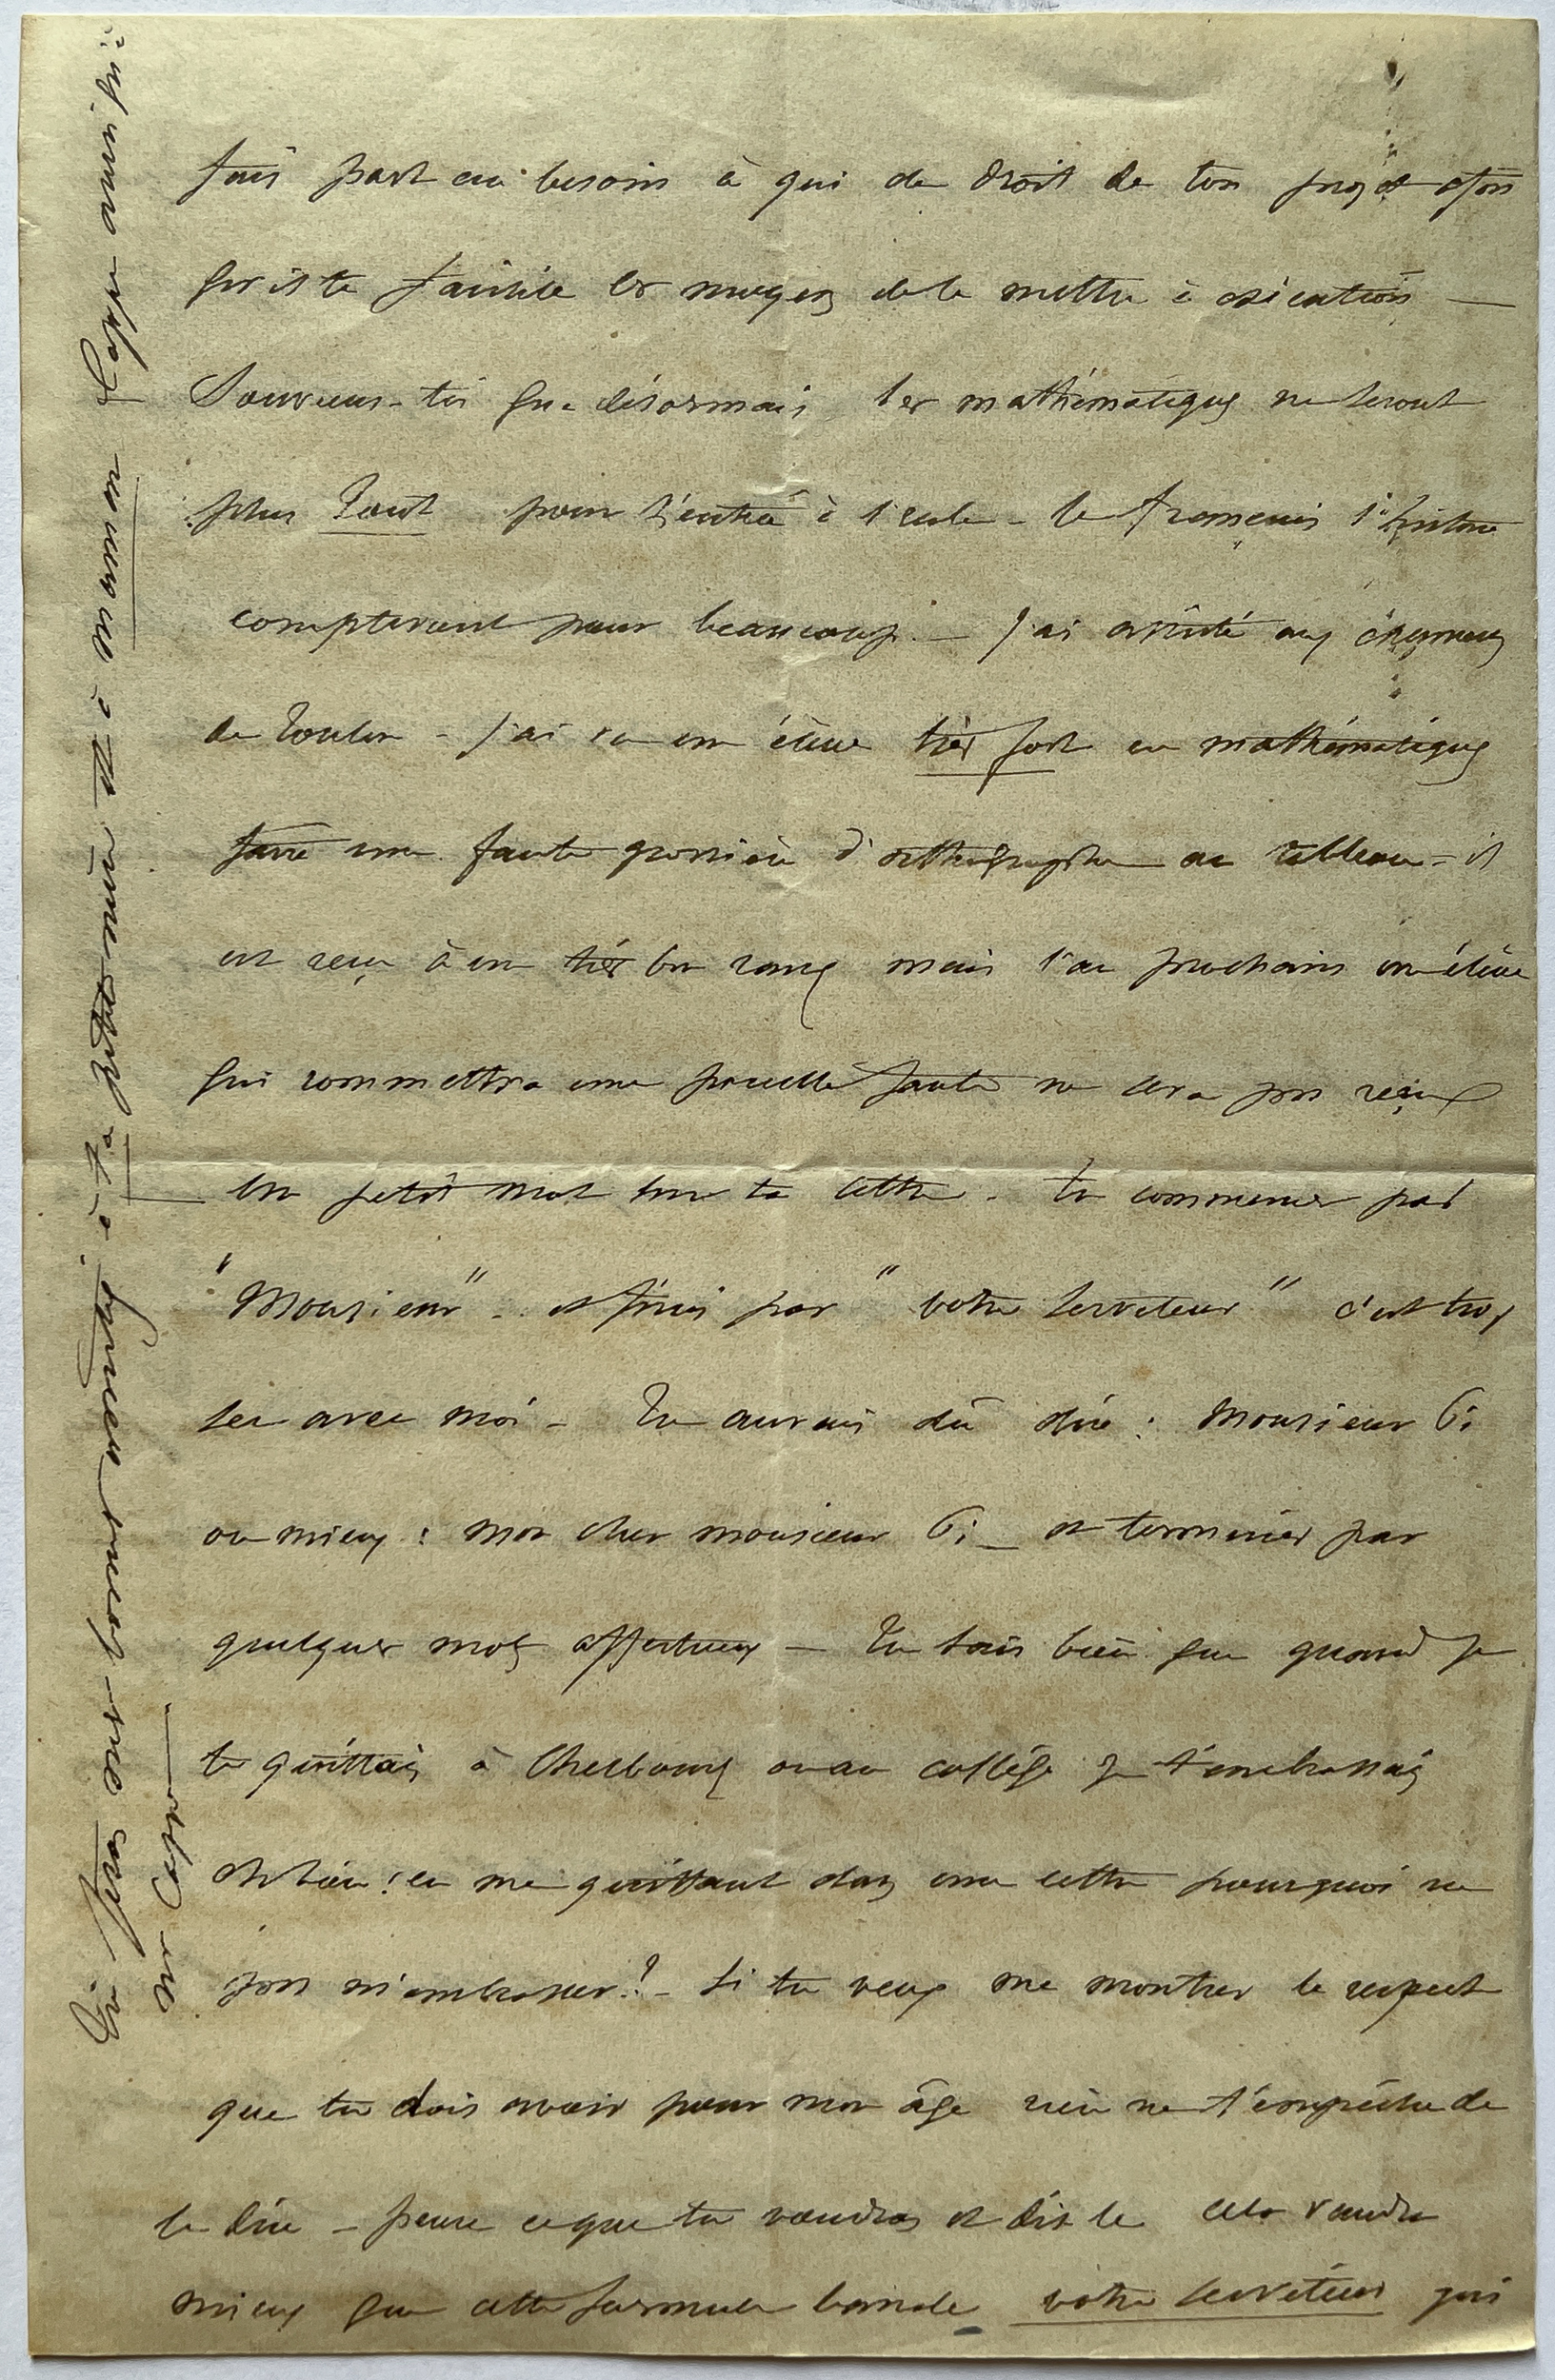 fais part au besoin à qui de droit de ton projet afin
qu'il te facilite les moyens de le mettre à exécution —
Souviens-toi que désormais les mathématiques ne seront
plus tout pour l'entrée à l'école - le français l'histoire
compteront pour beaucoup. — J'ai assisté aux examens
de Toulon - J'ai vu un élève très fort en mathématiques
faire une faute grossière d'orthographe au tableau - il
est reçu à un très bon rang mais l'an prochain un élève
qui commettra une pareille faute ne sera pas reçu
Un petit mot sur ta lettre. Tu commences par
"Monsieur" - et finis par "votre serviteur" c'est trop
sec avec moi - Tu aurais dû dire : Monsieur Gi
ou mieux : mon cher monsieur Gi _ et terminer par
quelques mots affectueux — Tu sais bien que quand je
te quittais à Cherbourg ou au collège je t'embrassais
eh bien ! en me quittant dans une lettre pourquoi ne
pas m'embrasser ? - Si tu veux me montrer le respect
que tu dois avoir pour mon âge rien ne t'empêche de
le dire - pense ce que tu voudras et dis le cela vaudra
mieux que cette formule banale votre serviteur qui
Tu feras mes bonnes amitiés à ta petite mère et à maman Cappe ainsi qu'à
mr Cappe —